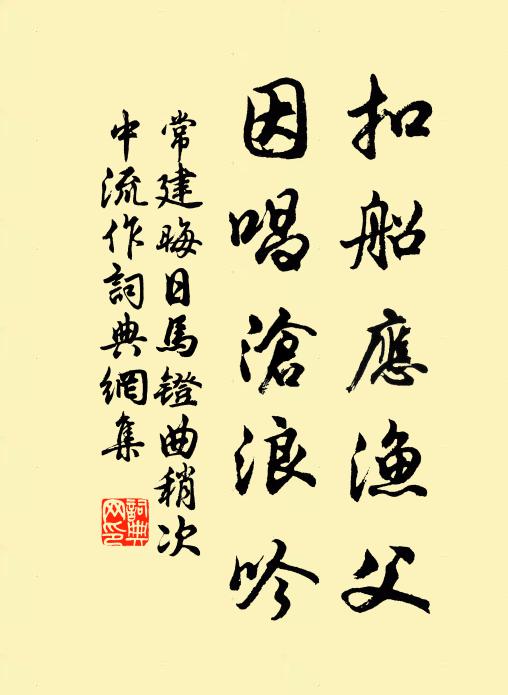 扣船應漁父
因唱滄浪吟
常建晦日馬鐙曲稍次
中流作詞典網集
詞典網印